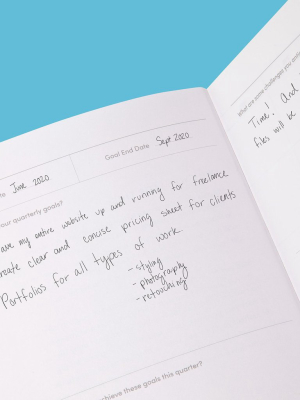 te June 2020
Goal End Date Sept 2020
our quarterly goals?
ave my entire website up and running for freelance
reate clear and concise pricing sheet for clients
Portfolios for all types of work
- styling
- photography
- retouching
achieve these goals this quarter?
What are some challenges you
Time! And
files will be